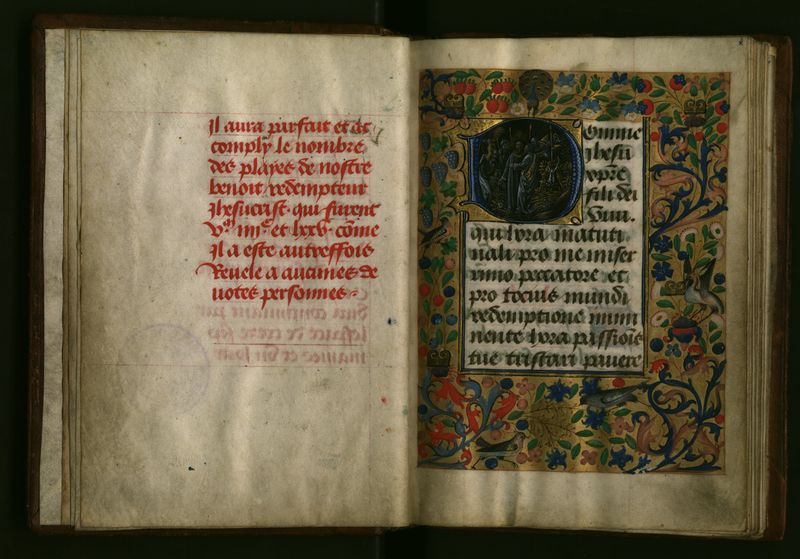 Il aura parfait et ac
comply le nombre
des playes de nostre
benoit redempteur
Jhesucrist qui furent
Vᵐ iiiiᶜ et lxxv cõme
Il a este autreffois
Revele a aucunes de
votes personnes
Domine
Jhesu
xpre
fili dei
vivi.
qui hora matuti
nali pro me miser
rimo peccatore et
pro tocius mundi
redemptione immi
nente hora passiõis
tue tristari pavere